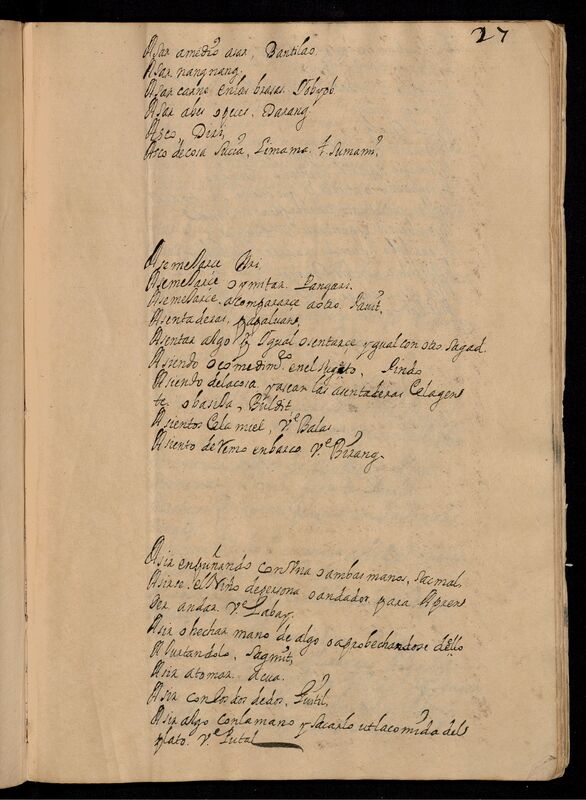 27
Asar amedio asar, Dantilao.
Asar nangnang.
Asar carne enlas brasas. Tobyob.
Asar abes o peces. Darang
Asco, Diri,
Asco de cosa sucia, Limama. t. sumami,
Asemejarce Uri.
Asemejarce o ymitar. Pangari.
Asemejarce, acompararce aotro.
Asentaderas,
Asentar algo Ygual o sentarce ygual con otro Sagad.
Asiendo o comedimto. enel Sugeto,
Asiendo delacosa, yasean las asentaderas Celagent
te. o basija, Buldit,
Asientos Cela miel, Ve. Balas
Asiento de remo enbarco. Ve. Birang.
Asir enpuñando con Una o ambas manos, Sacmal.
Asirse el Niño de persona o andador para Apren
der andar. Ve. Labay.
Asir o hechar mano de algo o aprobechandose dello
Asir atomar. Acua.
Asir con los dos dedos.
Asir algo conlamano y sacarlo ut lacomida del
plato. Ve.